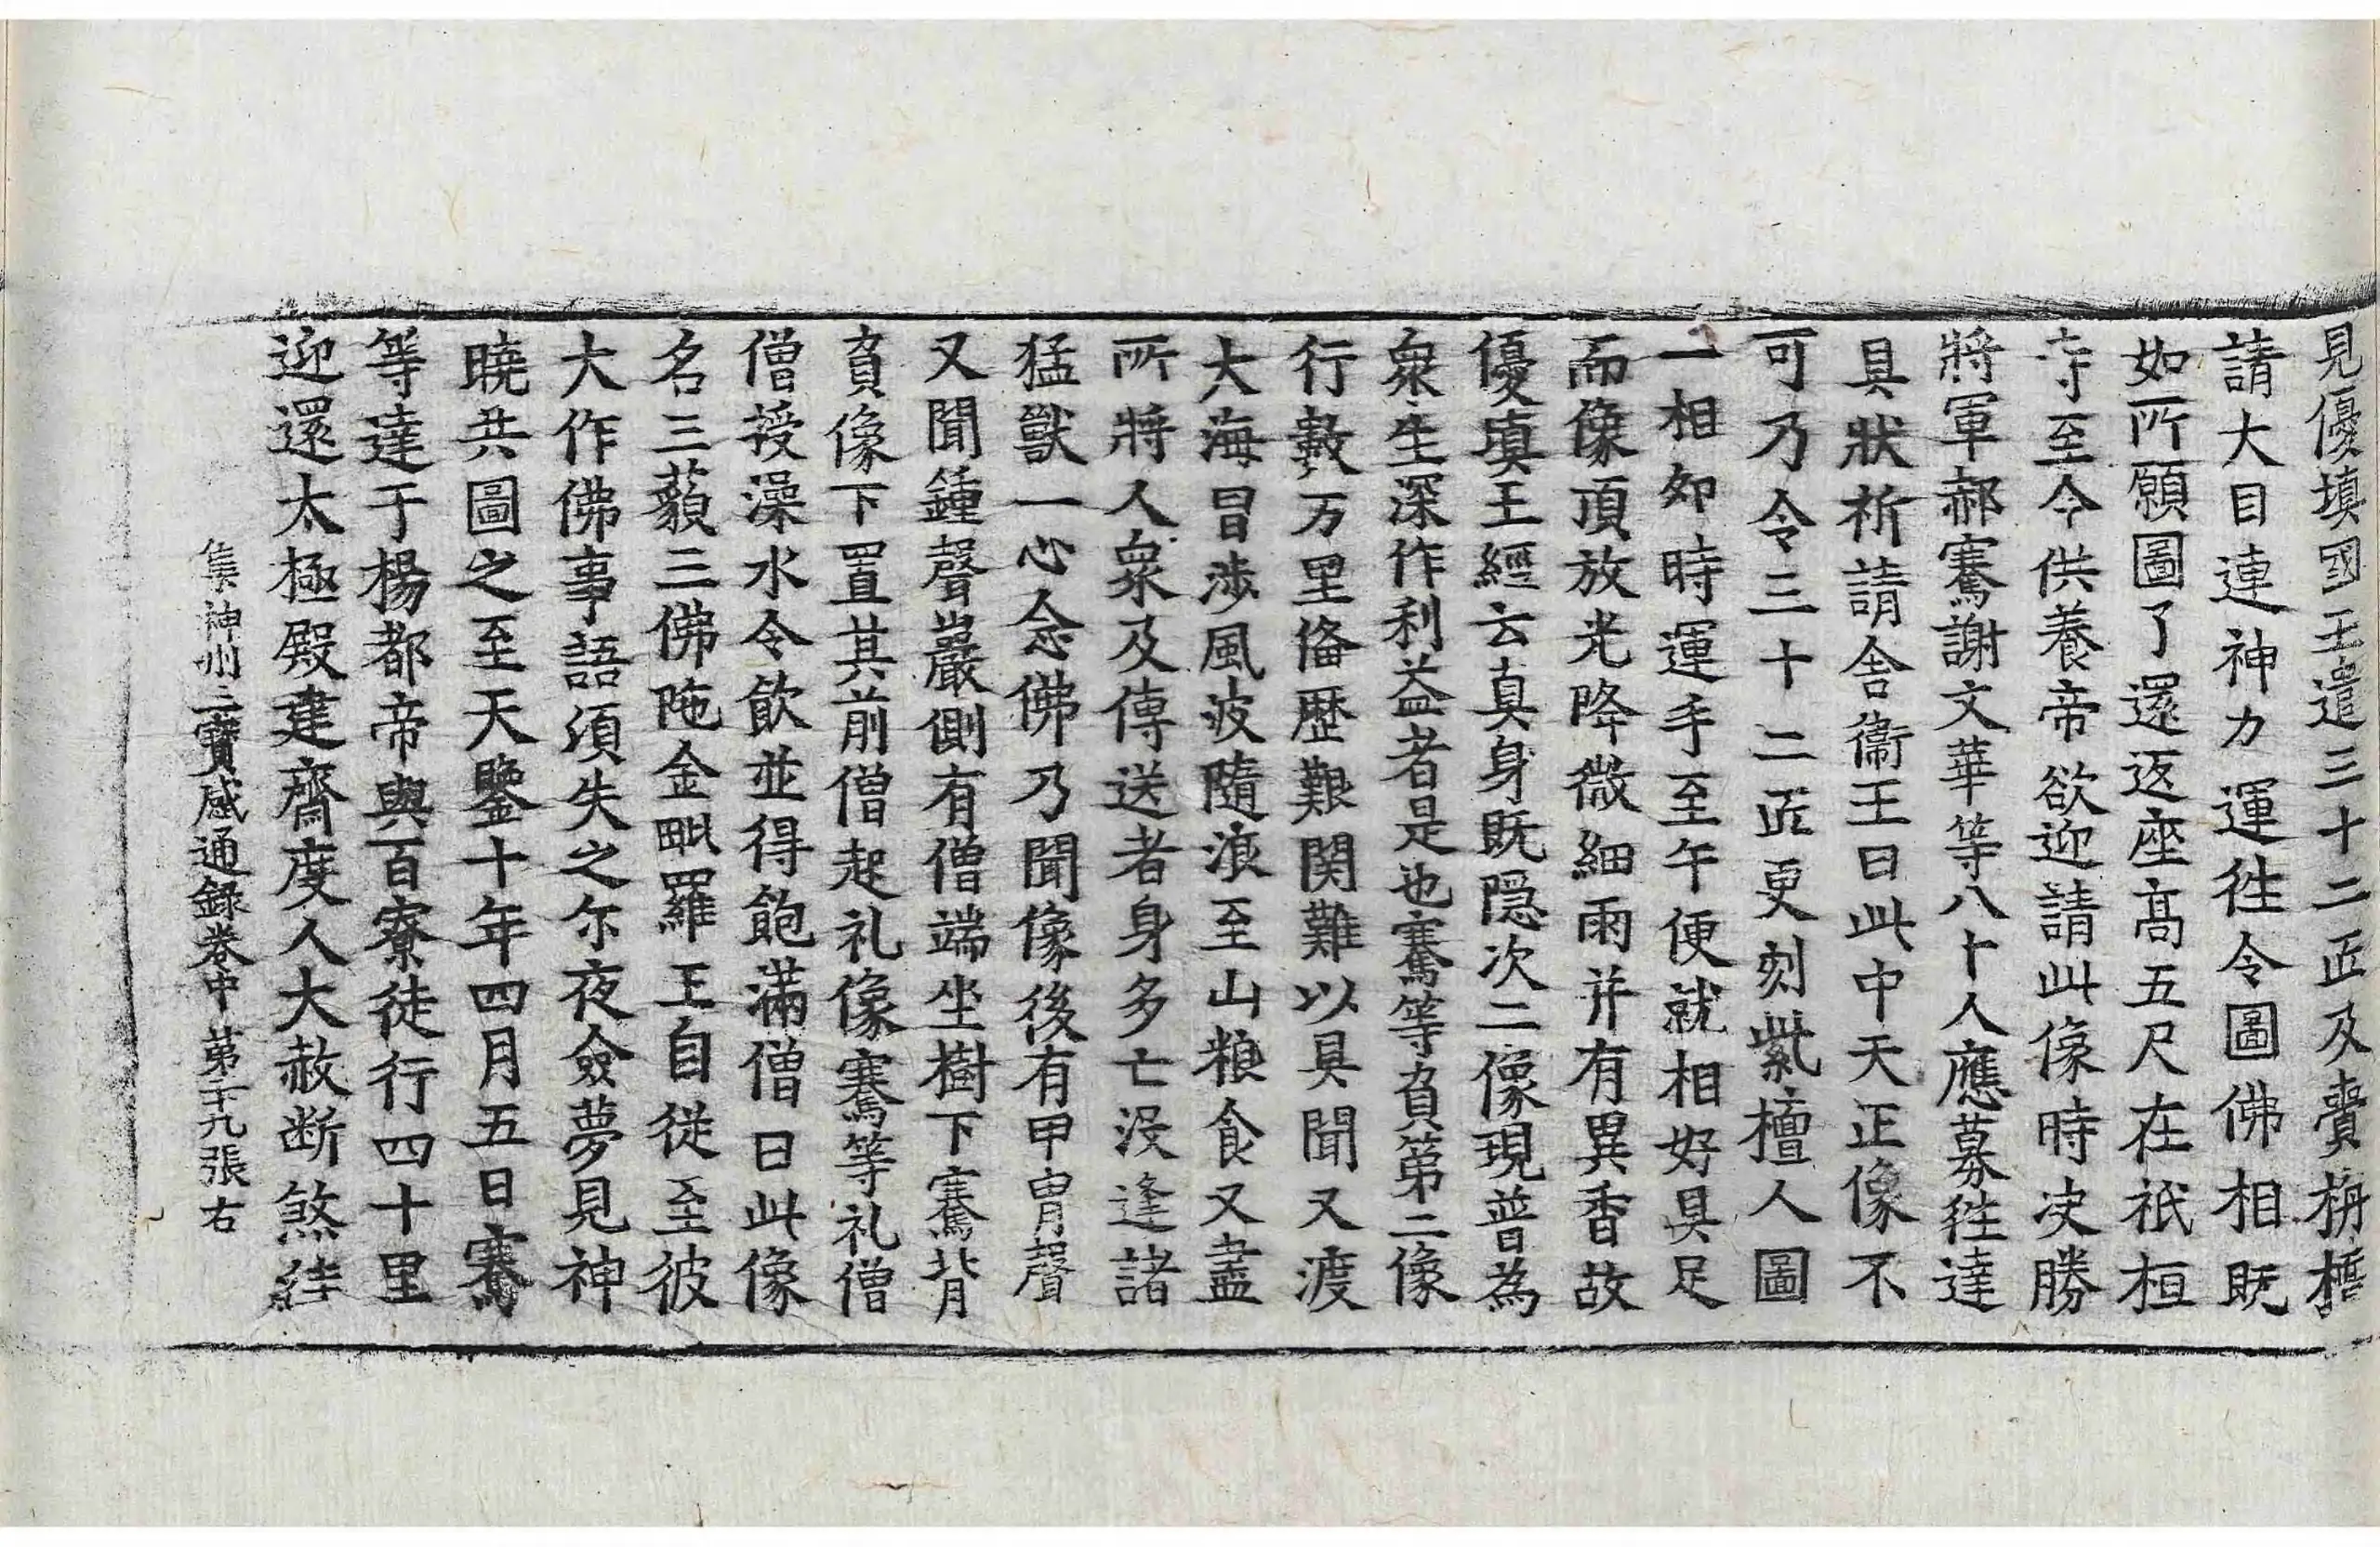 見優填國王遣三十二匠及賷栴檀
請大目連神力運徃令圖佛相既
如所願圖了還返座高五尺在祇桓
寺至今供養帝欲迎請此像時决勝
將軍郝騫謝文華等八十人應募徃達
具狀祈請舍衞王曰此中天正像不
可乃令三十二匠更刻紫檀人圖
一相卯時運手至午便就相好具足
而像頂放光降微細雨并有異香故
優填王經云真身既隠次二像現普為
衆生深作利益者是也騫等負第二像
行數万里俻歷艱関難以具聞又渡
大海冒涉風波隨浪至山粮食又盡
所將人衆及傳送者身多亡沒逢諸
猛獸一心念佛乃聞像後有甲胄聲
又聞鍾聲巖側有僧端坐樹下騫背
負像下置其前僧起礼像騫等礼僧
僧授澡水令飲並得飽滿僧曰此像
名三藐三佛陁金毗羅王自從至彼
大作佛事語湏失之尔夜僉夢見神
曉共圖之至天鑒十年四月五日騫
等達于楊都帝與百寮徒行四十里
迎還太極殿建齋度人大赦断煞絓
集神州三寶感通録卷中 第二十九張 右